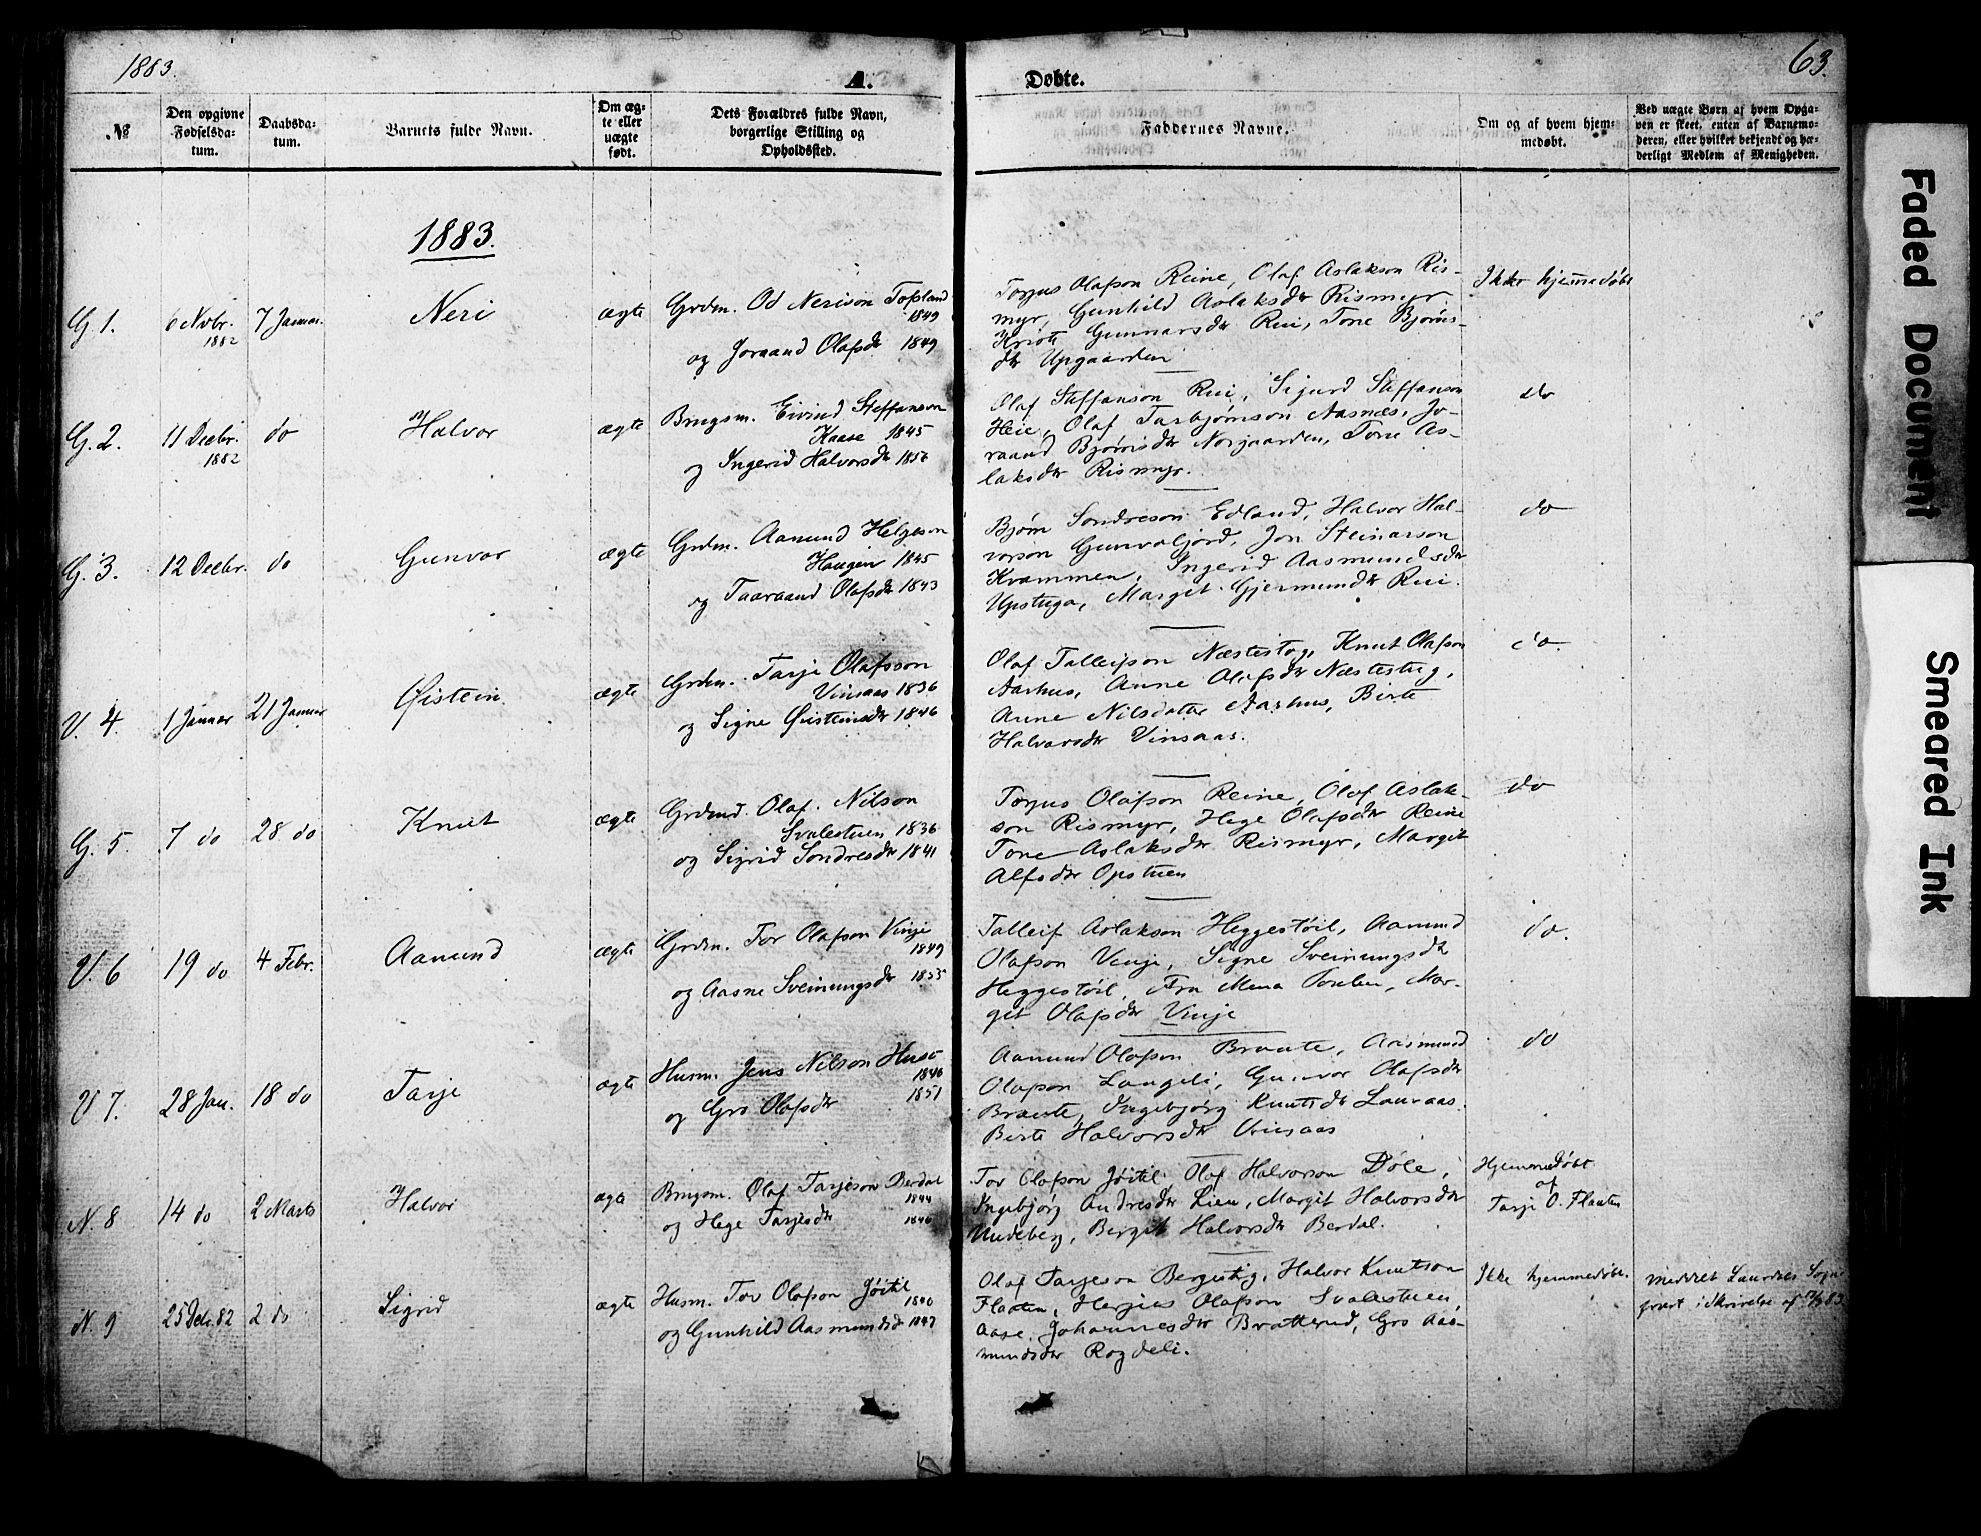 1883.
A.
Døbte.
63.
№
Den opgivne Fødselsda-tum.
Daabsda-tum.
Barnets fulde Navn.
Om æg-te eller uægte født.
Dets Forældres fulde Navn, borgerlige Stilling og Opholdssted.
Faddernes Navne.
Om og af hvem hjem-medøbt.
Ved uægte Børn af hvem Opga-ven er skeet, enten af Barnemo-deren, eller hvilket bekjendt og hæ-derligt Medlem af Menigheden.
1883.
G. 1.
6 Novbr. 1882
7 Januar.
Neri
ægte
Grdm. Od Nerison Topland 1849
og Joraand Olafsdtr 1849
Torjus Olafson Reine, Olaf Aslakson Ris-
myr, Gunhild Aslaksdtr Rismyr
Gunnarsdtr Rui, Tone Bjørns-
dtr Upgaarden
Ikke hjemmedøbt
G. 2.
11 Decbr. 1882
do
Halvor
ægte
Brugsm. Eivind Steffanson
Kaase 1845
og Ingerid Halvorsdtr 1856
Olaf Steffanson Rui, Sigurd Steffanson
Heie, Olaf Tarbjørnson Aasnæs, Jo-
raand Bjørnsdtr Norgaarden, Tone As-
laksdtr Rismyr.
do
G. 3.
12 Decbr.
do
Gunvor
ægte
Grdm. Aamund Helgeson
Haugen 1845
og Taaraand Olafsdtr 1843
Bjørn Sondreson Edland, Halvor Hal-
vorson Gunvaljord, Jon Steinarson
Kvammen, Ingerid Aasmundsdtr
Upstuga, Margit Gjermundsdtr Rui.
do
V. 4.
1 Januar
21 Januar
Øistein
ægte
Grdm. Tarje Olafsson
Vinsaas 1836
og Signe Øisteinsdtr 1846
Olaf Talleifson Næstestog, Knut Olafson
Aarhus, Anne Olafsdtr Næstestug,
Anne Nilsdatter Aarhus, Birte
Halvorsdtr Vinsaas.
do.
G. 5.
7 do
28 do
Knut
ægte
Grdmd. Olaf Nilson
Svalestuen 1836
og Sigrid Sondresdtr 1841
Torjus Olafson Reine, Olaf Aslak-
son Rismyr, Hege Olafsdtr Reine
Tone Aslaksdtr Rismyr, Margit
Alfsdtr Opstuen
do
V. 6
19 do
4 Febr.
Aamund
ægte
Grdm. Tor Olafson Vinje 1849
og Aasne Sveinungsdtr 1855
Talleif Aslakson Heggestøil, Aamund
Olafson Vinje, Signe Sveinungsdtr
Heggestøil, Fru Mena, Mar-
git Olafsdtr Vinje
do.
V 7.
28 Jan.
18 do
Tarje
ægte
Husm. Jens Nilson 1846
og Gro Olafsdtr 1851
Aamund Olafson Braate, Aasmund
Olafson Langeli, Gunvor Olafsdtr
Braate, Ingebjørg Knutsdtr Lauvaas.
Birte Halvorsdtr Vinsaas
do
N. 8
14 do
2 Marts
Halvor
ægte
Brugsm. Olaf Tarjeson Berdal 1844
og Hege Tarjesdtr 1846
Tor Olafson Jøitil, Olaf Halvorson Døle,
Ingebjørg Andresdtr Lien, Margit Halvorsdtr
Undeberg, Bergit Halvorsdtr Berdal.
Hjemmedøbt
af
Tarje O. Flaaten
N. 9
25 Decbr. 82
2 do
Sigrid
ægte
Husm. Tor Olafson Jøitil 1840
og Gunhild Aasmundsd 1847
Olaf Tarjeson Bergestig, Halvor Knutson
Flaaten, Herjus Olafson Svalestuen
Aase Johannesdtr Bratterud, Gro Aas-
mundsdtr Rogdeli.
Ikke hjemmedøbt.
meddelt Laurdals Sogne-
prest i skrivelse af
Faded Document
Smeared Ink